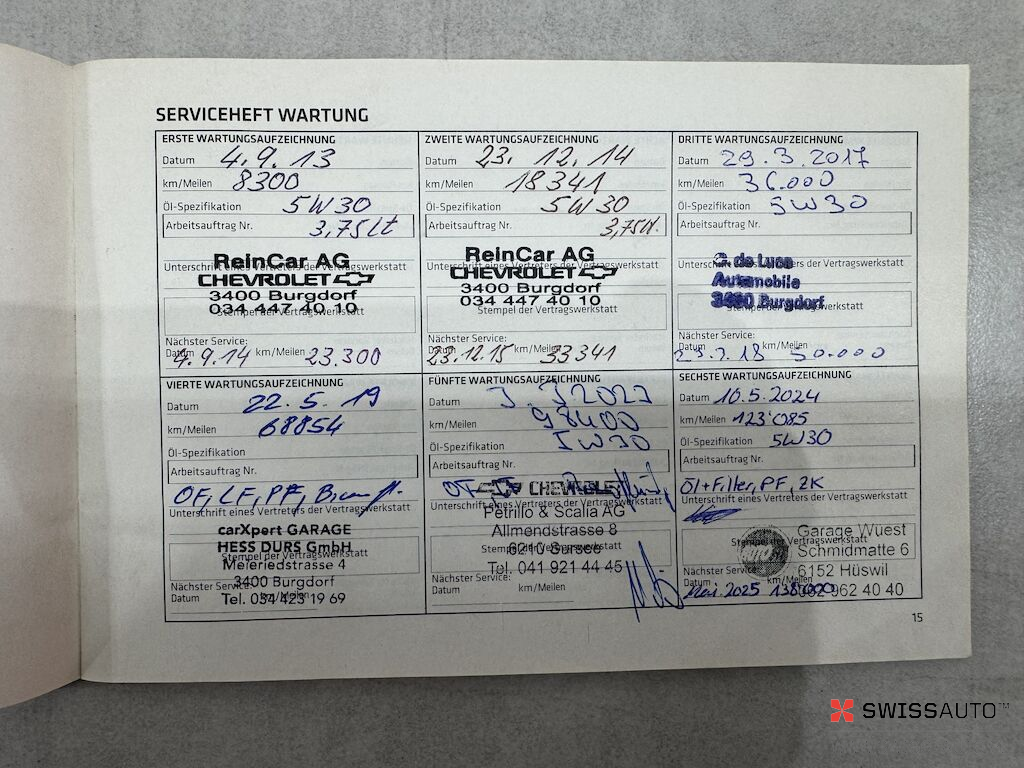 SERVICEHEFT WARTUNG
ERSTE WARTUNGSAUFZEICHNUNG
Datum 4.9.13
km/Meilen 8300
Öl-Spezifikation 5W30
Arbeitsauftrag Nr. 3,75Lt
ReinCar AG
Unterschrift eines Vertreters der Vertragswerkstatt
CHEVROLET
3400 Burgdorf
034 447 40 10
Stempel der Vertragswerkstatt
Nächster Service:
Datum 4.9.14 km/Meilen 23.300
ZWEITE WARTUNGSAUFZEICHNUNG
Datum 23.12.14
km/Meilen 18341
Öl-Spezifikation 5W30
Arbeitsauftrag Nr. 3,75lt.
ReinCar AG
Unterschrift eines Vertreters der Vertragswerkstatt
CHEVROLET
3400 Burgdorf
034 447 40 10
Stempel der Vertragswerkstatt
Nächster Service:
Datum 23.12.15 km/Meilen 33341
DRITTE WARTUNGSAUFZEICHNUNG
Datum 29.3.2017
km/Meilen 36.000
Öl-Spezifikation 5W30
Arbeitsauftrag Nr.
de Luca
Unterschrift eines Vertreters der Vertragswerkstatt
Automobile
3400 Burgdorf
Stempel der Vertragswerkstatt
Nächster Service:
Datum km/Meilen 50.000
VIERTE WARTUNGSAUFZEICHNUNG
Datum 22.5.19
km/Meilen 68854
Öl-Spezifikation
Arbeitsauftrag Nr.
OF, LF, PF,
Unterschrift eines Vertreters der Vertragswerkstatt
carXpert GARAGE
HESS DURS GmbH
Stempel der Vertragswerkstatt
Meieriedstrasse 4
3400 Burgdorf
Nächster Service:
Datum km/Meilen
Tel. 034 423 19 69
FÜNFTE WARTUNGSAUFZEICHNUNG
Datum
km/Meilen 98400
Öl-Spezifikation 5W30
Arbeitsauftrag Nr.
OF CHEVROLET
Unterschrift eines Vertreters der Vertragswerkstatt
Petrillo & Scalia AG
Allmendstrasse 8
Stempel der Vertragswerkstatt
6210 Sursee
Tel. 041 921 44 45
Nächster Service:
Datum km/Meilen
SECHSTE WARTUNGSAUFZEICHNUNG
Datum 10.5.2024
km/Meilen 123'085
Öl-Spezifikation 5W30
Arbeitsauftrag Nr.
Öl+Filter, PF, 2K
Unterschrift eines Vertreters der Vertragswerkstatt
Garage Wüest
Stempel der Vertragswerkstatt
Schmidmatte 6
Nächster Service:
6152 Hüswil
Datum km/Meilen
Mai 2025 138'000
062 962 40 40
15
SWISSAUTO™